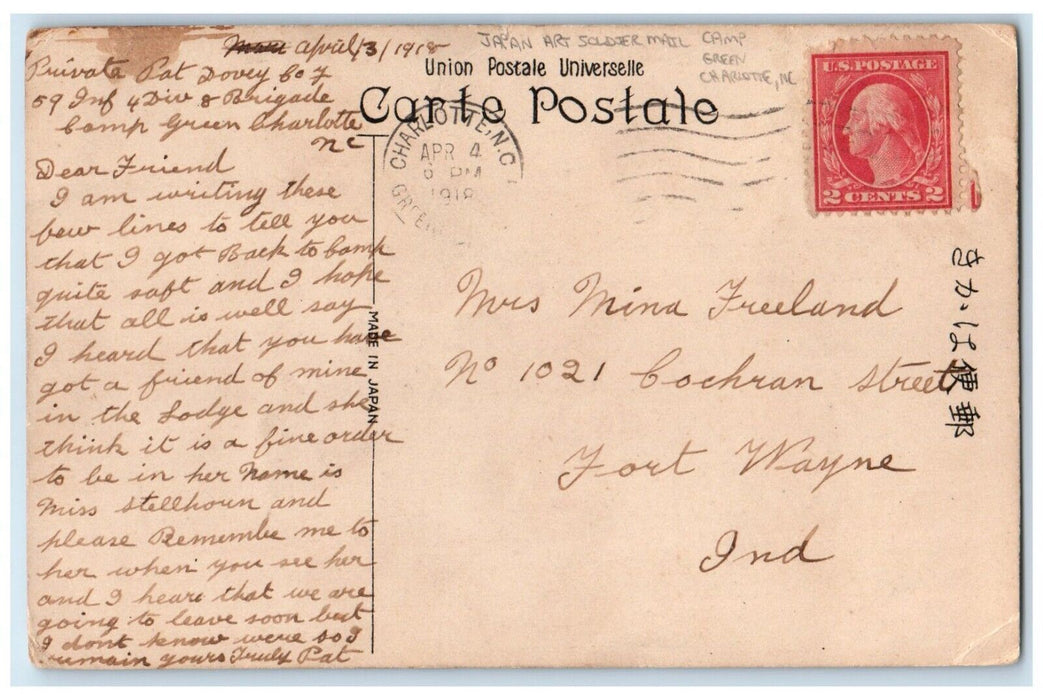 Mar April/3/1918
Private Pat Dovey Co F
59 Inf 4 Div 8 Brigade
Camp Green Charlotte
NC
Dear Friend
I am writing these
few lines to tell you
that I got Back to Camp
quite saft and I hope
that all is well say
I heard that you have
got a friend of mine
in the Lodge and she
think it is a fine order
to be in her Name is
Miss Stellhorn and
please Remembe me to
her when you see her
and I hear that we are
going to leave soon but
I dont know were so I
remain yours Truly Pat
JAPAN ART SOLDIER MAIL CAMP
GREEN
CHARLOTTE, NC
Union Postale Universelle
Carte Postale
CHARLOTTE, N.C.
APR 4
6 PM
1918
GREENE
U.S. POSTAGE
2 CENTS 2
MADE IN JAPAN
Mrs Mina Freeland
No 1021 Cochran Street
Fort Wayne
Ind
きかは便郵